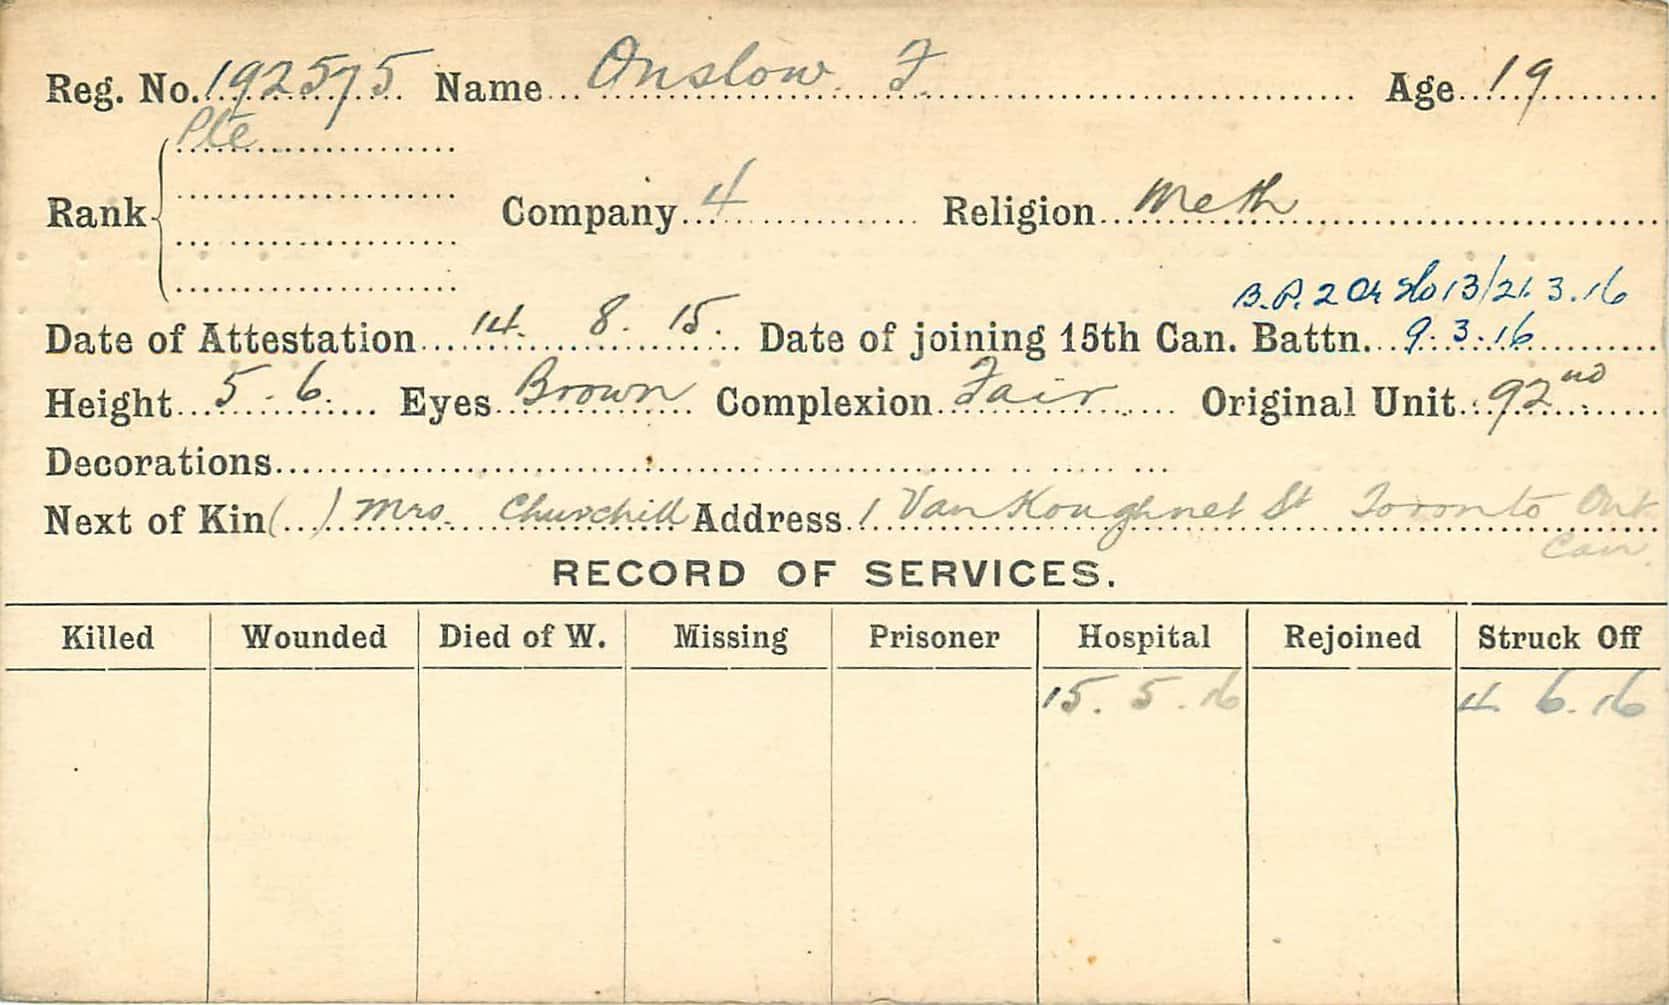 Reg. No. 192575 Name Onslow F. Age 19
Pte
Rank Company 4 Religion Meth
B.P. 2 Or 13/21.3.16
Date of Attestation 14. 8. 15. Date of joining 15th Can. Battn. 9.3.16
Height 5-6. Eyes Brown Complexion Fair Original Unit 92nd
Decorations
Next of Kin ( ) Mrs. Churchill Address 1 Van Koughnet St Toronto Ont
Can
RECORD OF SERVICES.
Killed Wounded Died of W. Missing Prisoner Hospital Rejoined Struck Off
15. 5. 16 4. 6. 16